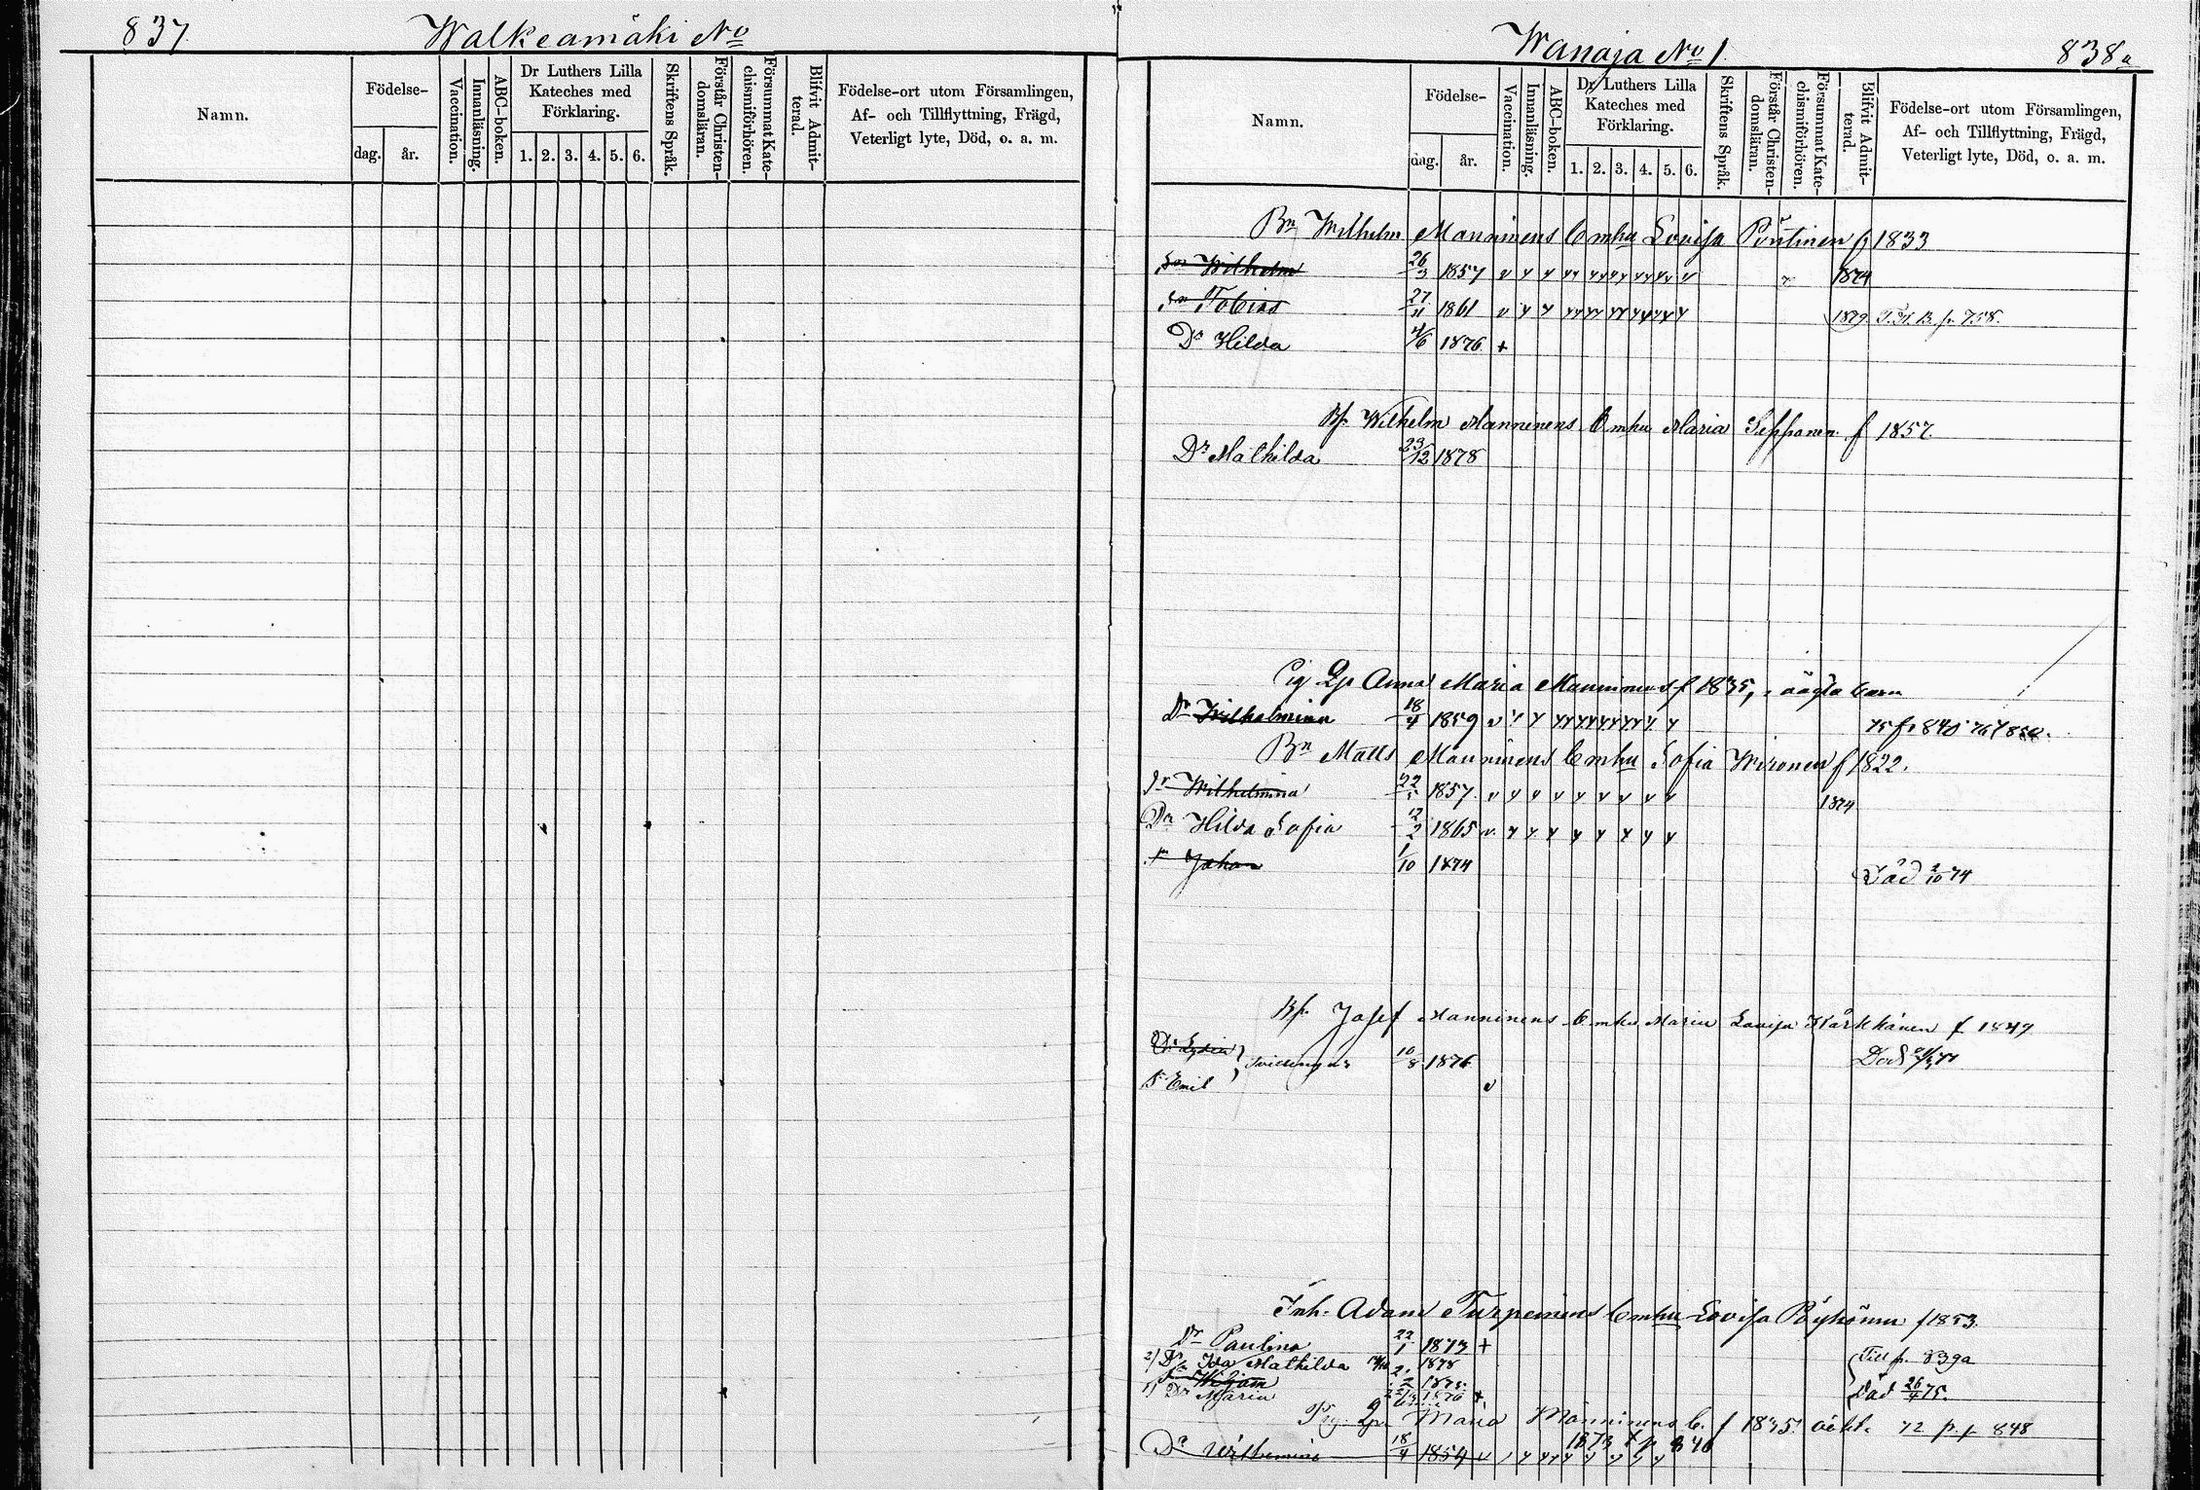 837.
Walkeamäki No
Namn.
Födelse-
dag.
år.
Vaccination.
Innanläsning.
ABC-boken.
Dr Luthers Lilla
Kateches med
Förklaring.
1. 2. 3. 4. 5. 6.
Skriftens Språk.
Förstår Christen-
domsläran.
Försummat Kate-
chismiförhören.
Blifvit Admit-
terad.
Födelse-ort utom Församlingen,
Af- och Tillflyttning, Frägd,
Veterligt lyte, Död, o. a. m.
Wanaja No 1.
838a
Namn.
Födelse-
dag.
år.
Vaccination.
Innanläsning.
ABC-boken.
Dr Luthers Lilla
Kateches med
Förklaring.
1. 2. 3. 4. 5. 6.
Skriftens Språk.
Förstår Christen-
domsläran.
Försummat Kate-
chismiförhören.
Blifvit Admit-
terad.
Födelse-ort utom Församlingen,
Af- och Tillflyttning, Frägd,
Veterligt lyte, Död, o. a. m.
Bn Wilhelm Manninens b m hu Lovisa f 1833
Son Wilhelm 26/3 1857 1874
Sn Tobias 27/11 1861 1879 p. 758.
Dr Hilda 4/6 1876 +
Wilhelm Manninens b m hu Maria Sepponen f 1857.
Dr Mathilda 23/12 1878
Pig Anna Maria Manninens f 1835, oägta barn
Dr Wilhelmina 18/4 1859 75 f. 840
Bn Matts Manninens b m hu Sofia Wironen f 1822.
Wilhelmina 22/5 1857. 1874
Dr Hilda Sofia 2/2 1865
Johan 1/10 1874 Död 2/10 74
Josef Manninens b m hu Maria Lovisa Kärkkänen f 1849
Dr Lydia
Tvillingar 10/8 1876 Död
Sn Emil
Inh. Adam Turpeinens b m hu Lovisa Pöyhönen f 1853.
Dr Paulina 22/1 1873 +
2) Dr Ida Mathilda 1878 Till p. 839a
Wiljam 1875. Död 26/4 75.
1) Dr Maria 1876 +
Pig. Maria Manninens b. f 1835. oäkt. 72 p. f 848
1873 f p 840
Dr Wilhelmina 18/4 1859